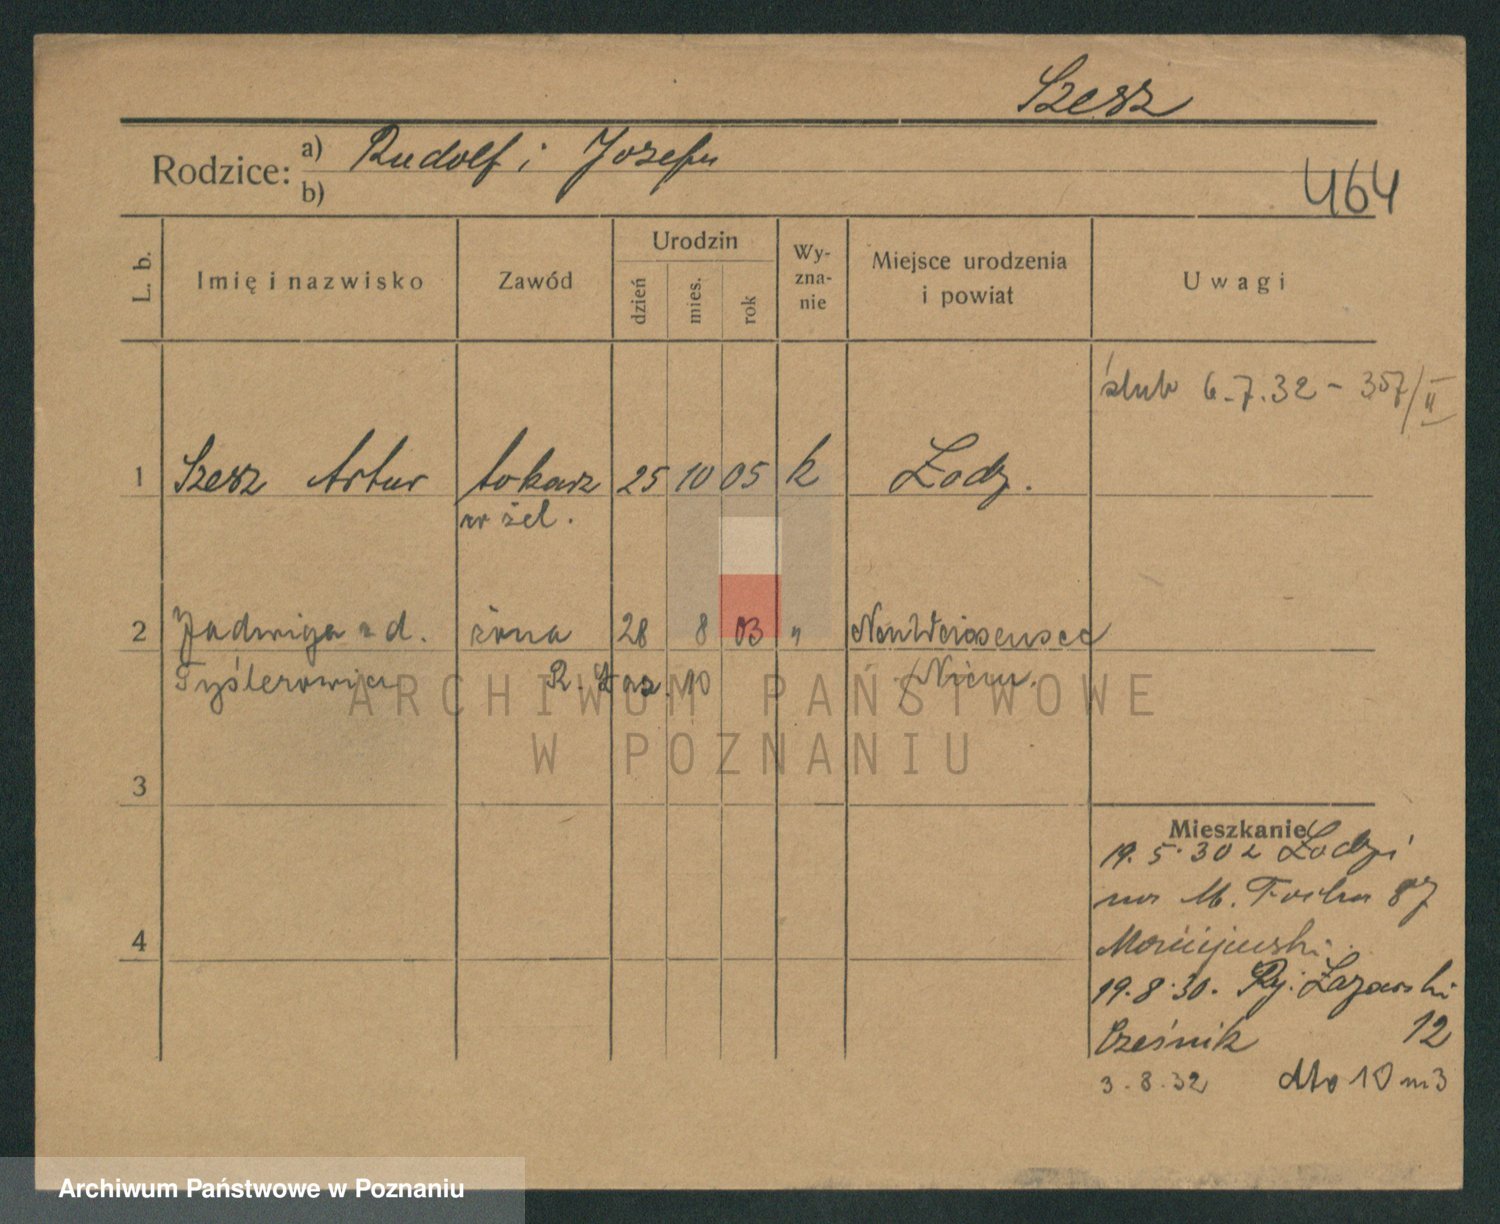 Szesz
Rodzice: a) Rudolf i Józefa
b)
464
L. b.
Imię i nazwisko
Zawód
Urodzin
dzień
mies.
rok
Wy-
zna-
nie
Miejsce urodzenia
i powiat
Uwagi
ślub 6.7.32 - 357/II
1 Szesz Artur tokarz 25 10 05 k Łodz.
w żel.
2 Jadwiga z d. żona 28 8 03 " NeuWeissensee
Tyślerowicz R. Łaz. 10 /Niem.
ARCHIWUM PAŃSTWOWE
W POZNANIU
3
4
Mieszkanie
19.5.30 z Łodzi
na M. Focha 87
19.8.30. Ry. Łazarski
Cześnik 12
3.8.32 dto 10 m3
Archiwum Państwowe w Poznaniu